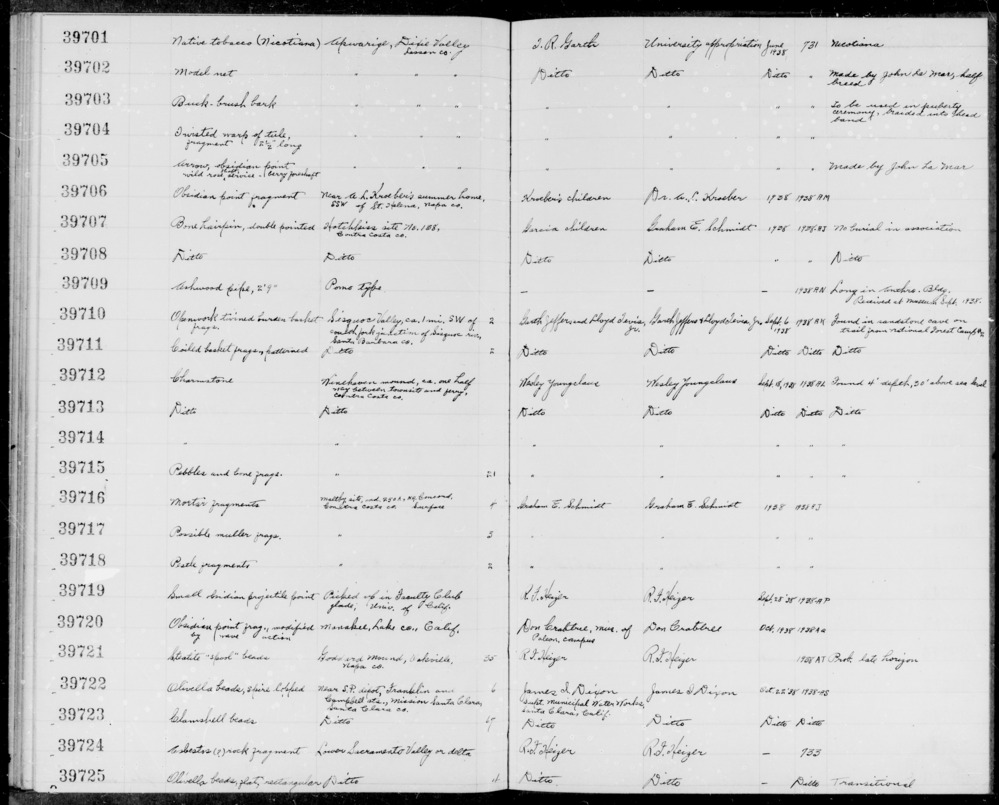 39701 Native tobacco (Nicotiana) Apwarige, Dixie Valley T. R. Garth University appropriation June 731 Nicotiana
Lassen co. 1938
39702 Model net " " " Ditto Ditto Ditto " Made by John La Mar, half
breed
39703 Buck-brush bark " " " " " " " To be used in puberty
ceremony, braided into head
band
39704 Twisted warp of tule, " " " " " " "
fragment 2½" long
39705 Arrow, obsidian point " " " " " " " Made by John La Mar
wild rose, service-berry foreshaft
39706 Obsidian point fragment Near A. L. Kroeber's summer home, Kroeber's children Dr. A. L. Kroeber 1938 1938 AM
SSW of St. Helena, Napa co.
39707 Bone hairpin, double pointed Hotchkiss site No. 138, Garcia children Graham E. Schmidt 1938 No burial in association
Contra Costa co.
39708 Ditto Ditto Ditto Ditto " " Ditto
39709 Ashwood pipe, 2'9" Pomo type — — 1938 AN Long in Anthro. Bldg.
Received at museum Sept. 1938.
39710 Openwork twined burden basket Sisquoc Valley, ca. 1 mi. SW of 2 Garth Jeffers and Lloyd Garth Jeffers & Lloyd Sept. 6 1938 AK Found in sandstone cave on
frags. South fork junction of Sisquoc riv., Jr. 1938 trail from national Forest Camp
Santa Barbara co.
39711 Coiled basket frags., patterned Ditto 2 Ditto Ditto Ditto Ditto Ditto
39712 Charmstone Winehaven mound, ca. one half Wesley Youngclaus Wesley Youngclaus Sept. 15, 1938 1938 AL Found 4' depth, 30' above sea level
way between townsite and ferry,
Contra Costa co.
39713 Ditto Ditto Ditto Ditto Ditto Ditto Ditto
39714 " " " " " " "
39715 Pebbles and bone frags. " 21 " " " " "
39716 Mortar fragments Maltby site, Concord, 4 Graham E. Schmidt Graham E. Schmidt 1938
Contra Costa co. Surface
39717 Possible muller frags. " 3 " " " "
39718 Pestle fragments " 2 " " " "
39719 Small obsidian projectile point Picked up in Faculty Club R. F. Heizer R. F. Heizer Sept. 28 '38 1938-AP
glade, Univ. of Calif.
39720 Obsidian point frag., modified Manakee, Lake co., Calif. Don Crabtree, mus. of Don Crabtree Oct. 1938
by wave action Paleon., campus
39721 Steatite "spool" beads Goddard Mound, Oakville, 35 R. F. Heizer R. F. Heizer 1938 AT Prob. late horizon
Napa co.
39722 Olivella beads, spire lopped Near S.P. depot, Franklin and 6 James I. Dixon James I. Dixon Oct. 22 '38 1938-AS
Campbell sts., Mission Santa Clara, Supt. Municipal Water Works,
Santa Clara co. Santa Clara, Calif.
39723 Clamshell beads Ditto 67 Ditto Ditto Ditto Ditto
39724 Asbestos (?) rock fragment Lower Sacramento Valley or delta R. F. Heizer R. F. Heizer — 733
39725 Olivella beads, flat, rectangular Ditto 4 Ditto Ditto — Ditto Transitional